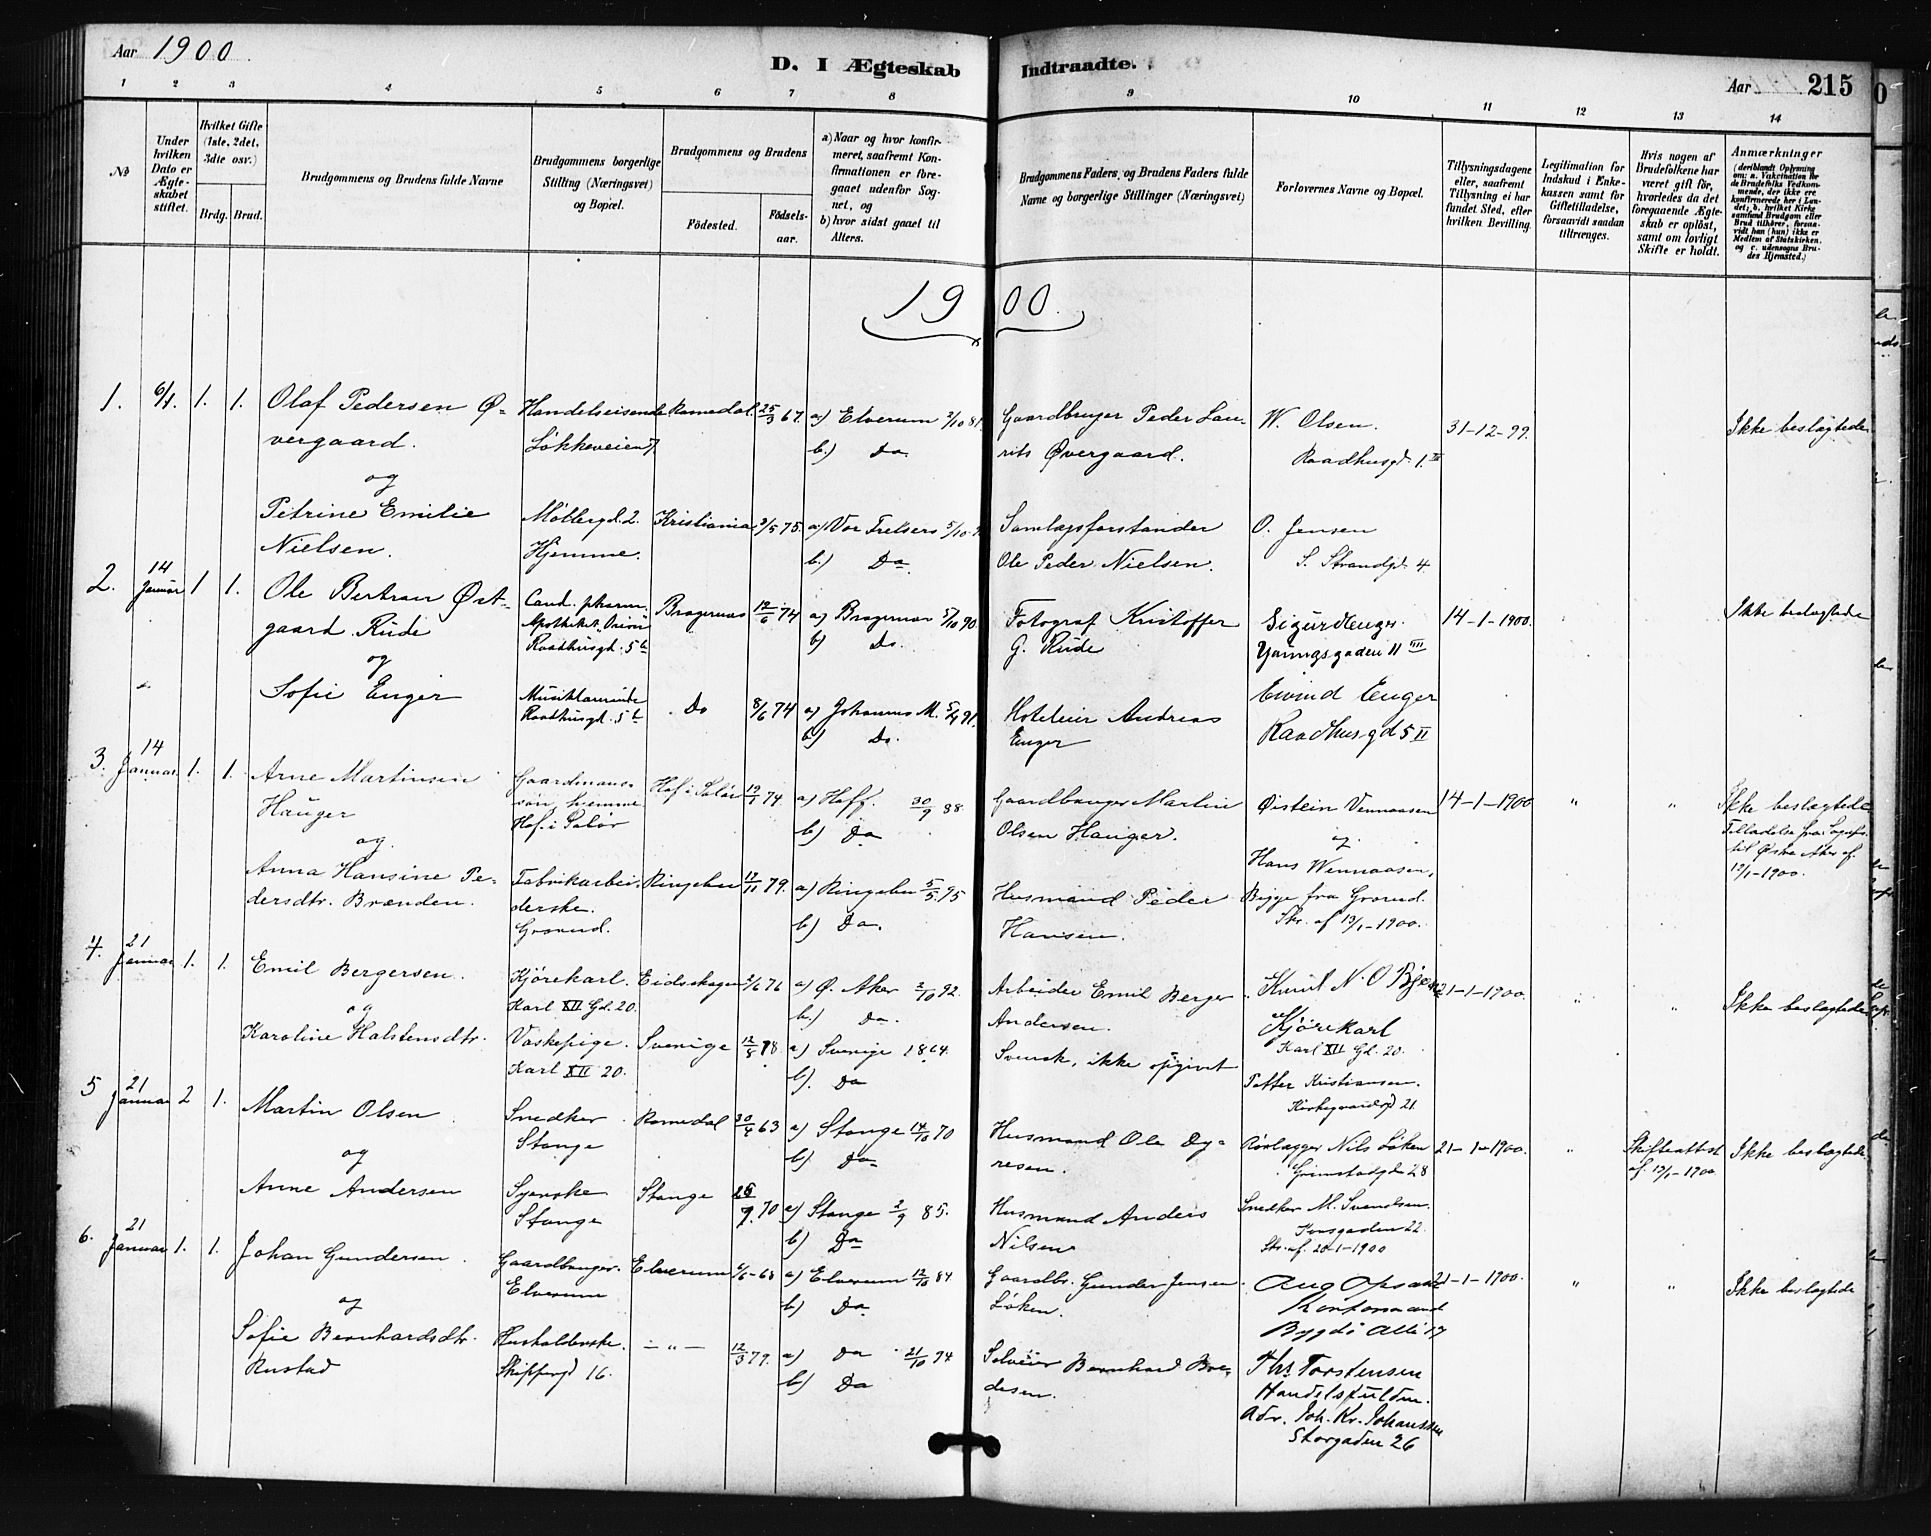 Aar 1900
D. I Ægteskab Indtraadte.
Aar 215
1 2 3 4 5 6 7 8 9 10 11 12 13 14
No
Under hvilken Dato er Ægteskabet stiftet.
Hvilket Gifte (1ste, 2det, 3die osv.)
Brdg. Brud.
Brudgommens og Brudens fulde Navne
Brudgommens borgerlige Stilling (Næringsvei) og Bopæl.
Brudgommens og Brudens
Fødested.
Fødselsaar.
a) Naar og hvor konfirmeret, saafremt Konfirmationen er foregaaet udenfor Sognet, og
b) hvor sidst gaaet til Alters.
Brudgommens Faders og Brudens Faders fulde Navne og borgerlige Stillinger (Næringsvei)
Forlovernes Navne og Bopæl.
Tillysningsdagene eller, saafremt Tillysning ei har fundet Sted, efter hvilken Bevilling.
Legitimation for Indskud i Enkekassen samt for Giftetilladelse, forsaavidt saadan tiltrænges.
Hvis nogen af Brudefolkene har været gift før, hvorledes da det foregaaende Ægteskab er opløst, samt om lovligt Skifte er holdt.
Anmærkninger (deriblandt Oplysning om: a. Vakcination for de Brudefolks Vedkommende, der ikke ere konfirmerede her i Landet; b. hvilket Kirkesamfund Brudgom eller Brud tilhører, forsaavidt han (hun) ikke er Medlem af Statskirken, og c. udensogns Brudes Hjemsted.)
1900.
1. 6/1. 1. 1. Olaf Pedersen Ø- Handelsreisende Romedal. 25/3 67. a) Elverum 2/10 81. Gaardbruger Peder Lau- W. Olsen. 31-12-99. Ikke beslægtede
vergaard. Løkkeveien 7. b.) Do. rits Øvergaard. Raadhusgd. 1. III
og
Petrine Emilie Møllergd. 2. Kristiania 3/5 75. a) Vor Frelsers 5/10 Samlagsforstander O. Jensen
Nielsen. Hjemme. b.) Do. Ole Peder Nielsen. S. Strandgd. 4.
2. 14 Januar 1 1. Ole Bertran Øst- Cand. pharm. Bragernæs 12/6 74 a) Bragernæs 5/10 90. Fotograf Kristoffer Sigurd Enger 14-1-1900. Ikke beslægtede
gaard Rude Raadhusgd. 5b b) Do. G. Rude Youngsgaden 11 III
og
Sofie Enger Musiklærerinde Do 8/6 74 a) Johannes M. 5/4 91. Hoteleier Andreas Eivind Enger
Raadhusgd. 5b b) Do. Enger Raadhusgd 5 II
3. 14 Januar 1. 1. Arne Martinsen Gaardmans- Hof i Solør 12/1 74. a) Hoff. 30/9 88. Gaardbruger Martin Øistein Vennaasen 14-1-1900 " " Ikke beslægtede
Hauger søn, hjemme Hof i Solør b) Do Olsen Hauger. Tilladelse fra Sognepr. til Østre Aker af 12/1-1900.
og. og
Anna Hansine Pe- Fabrikarbei- Ringebu 12/11 79. a) Ringebu 5/5 95 Husmand Peder Hans Wennaasen,
dersdtr. Brænden. derske. Grorud. b) Do. Hansen. Begge fra Grorud. Skr. af 13/1-1900.
4. 21 Januar 1. 1. Emil Bergersen. Kjørekarl. Eidskogen 2/6 76 a) Ø. Aker 2/10 92. Arbeider Emil Berger Knut N. O. 21-1-1900. " " Ikke beslægtede
og Karl XII Gd. 20. b.) Do. Andersen. Kjørekarl Karl XII Gd. 20.
Karoline Halstensdtr. Vaskepige. Sverige 12/8 78. a) Sverige 1864. Svensk, ikke opgivet Petter Kristiansen.
Karl XII 20. b). Do Kirkegaardsgd 21.
5 21 Januar 2 1. Martin Olsen Snedker Romedal 30/4 63 a) Stange 14/10 70 Husmand Ole Dy- Rørlægger Nils Løken 21-1-1900. " Skifteattest Ikke beslægtede
Stange b) Do resen. Grimstadgd. 28 af 13/1-1900.
og
Anne Andersen Syerske Stange 26/9. 70 a) Stange 2/9 85. Husmand Anders Snedker M. Svendsen.
Stange b) Do Nilsen 22. Skr. af 20-1-1900
6. 21 Januar 1. 1. Johan Gundersen Gaardbruger. Elverum 6/6-68 a) Elverum 12/10 84 Gaardbr. Gunder Jensen Aug 21-1-1900. " " Ikke beslægtede
Elverum b) Do Løken. Kontormand
og Bygdø Alle 17
Sofie Bernhardsdtr. Husholderske. -"- 12/3 79. a) Do 21/10 94 Selveier Bernhard Bre- Ths Torstensen
Rustad Skippergd 16. b) Do desen. Handelsfuldm.
Adr. Joh. Kr. Johanssen
Storgaden 26